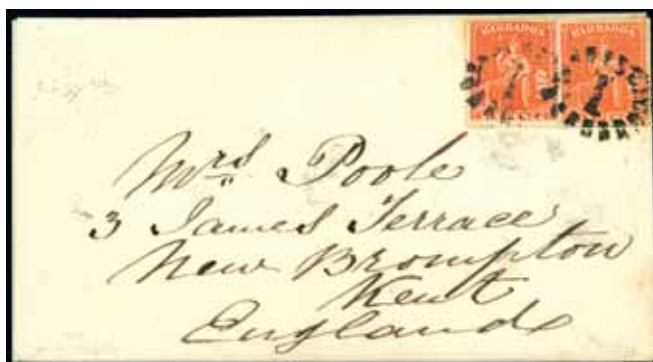 BARBADOS BARBADOS
1 1
Mrs Poole
3 James Terrace
New Brompton
Kent
England